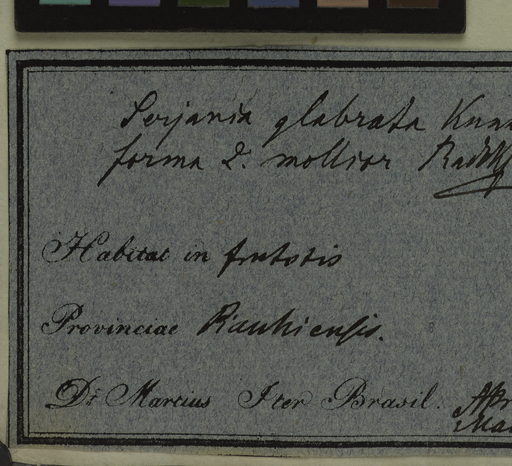 Serjania glabrata Kun
forma 2. mollior Radlk
Habitat in frutetis
Provinciae Piauhiensis.
Dr. Martius Iter Brasil. Apr
Mai